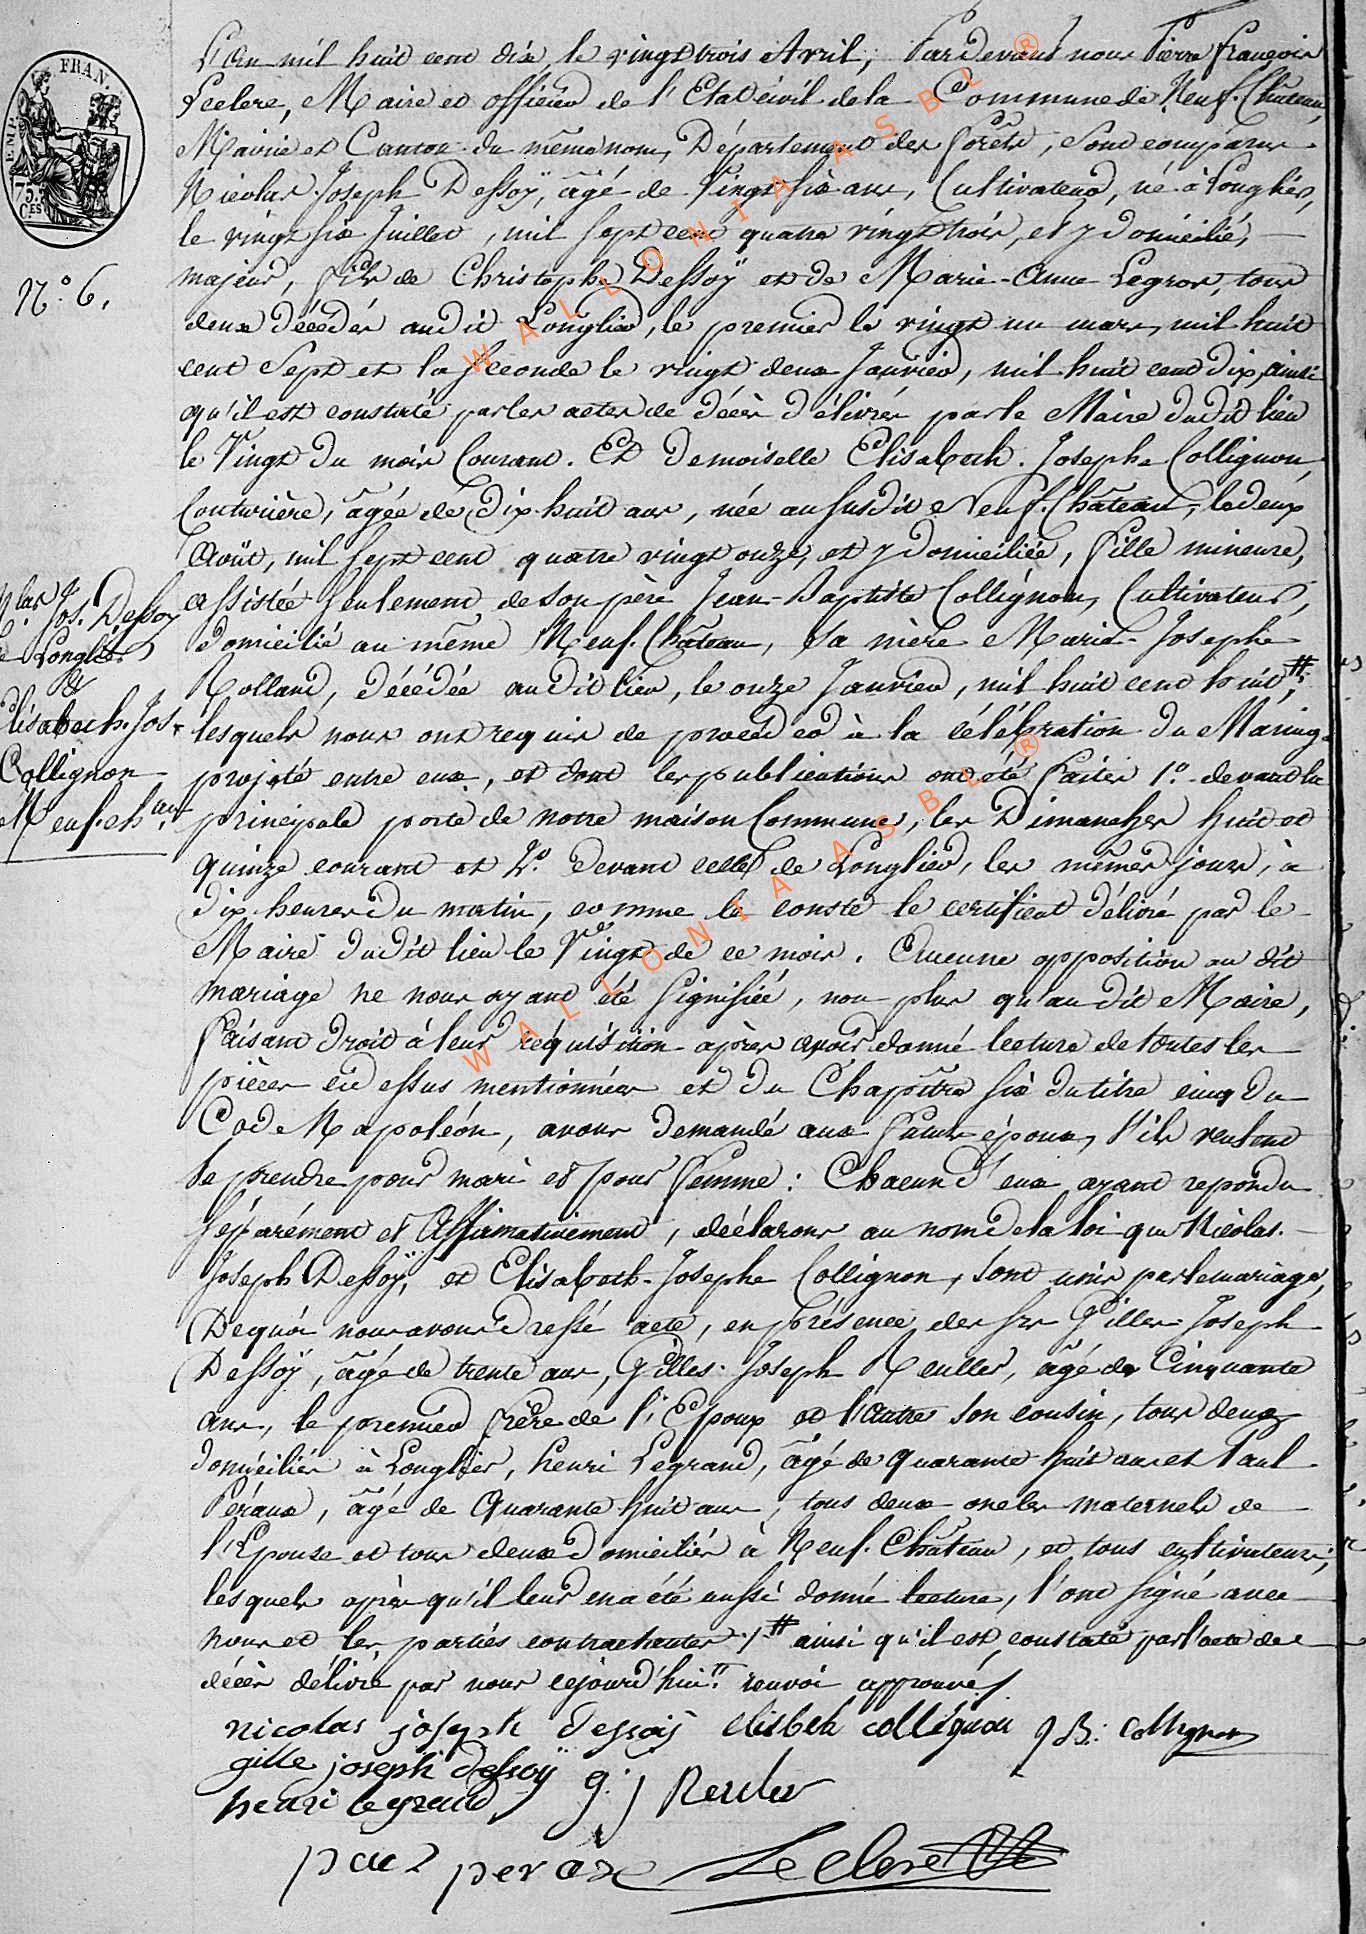 L'An mil huit cent dix, le vingt trois Avril, Pardevant nous Pierre François
Leclere, Maire et officier de l'Etat civil de la Commune de Neuf-Château,
Mairie et Canton du même nom, Département des Forêts, sont comparus
Nicolas Joseph Dessoÿ, âgé de Vingt six ans, Cultivateur, né à Longlier,
le vingt six Juillet, mil sept cent quatre vingt trois, et y domicilié,
majeur, fils de Christophe Dessoÿ et de Marie-Anne Legros, tous
deux décédés audit Longlier, le premier le vingt un mars, mil huit
cent sept et la seconde le vingt deux Janvier, mil huit cent dix, ainsi
qu'il est constaté par les actes de décès délivrés par le Maire dudit lieu
le Vingt du mois Courant. Et Demoiselle Elisabeth-Josephe Collignon,
Couturière, âgée de dix huit ans, née au susdit Neuf-Château, le deux
Août, mil sept cent quatre vingt onze, et y domiciliée, fille mineure,
assistée seulement de son père Jean-Baptiste Collignon, Cultivateur,
domicilié au même Neuf-Château, sa mère Marie-Josephe
Rolland, décédée audit lieu, le onze Janvier, mil huit cent huit #;
lesquels nous ont requis de procéder à la célébration du Mariage
projeté entre eux, et dont les publications ont été faites 1.º devant la
principale porte de notre maison Commune, les Dimanches huit et
quinze courant et 2.º devant celle de Longlier, les mêmes jours, à
dix heures du matin, comme le conste le certificat délivré par le
Maire dudit lieu le Vingt de ce mois. Aucune opposition au dit
mariage ne nous ayant été signifiée, non plus qu'au dit Maire,
faisant droit à leur réquisition après avoir donné lecture de toutes les
pièces cidessus mentionnées et du Chapitre six du titre cinq du
Code Napoléon, avons demandé aux futurs époux, s'ils veulent
se prendre pour mari et pour femme: Chacun d'eux ayant repondu
séparément et Affirmativement, déclarons au nom de la loi que Nicolas-
Joseph Dessoÿ, et Elisabeth-Josephe Collignon, sont unis par le mariage,
De quoi nous avons dressé acte, en présence des srs Gilles-Joseph
Dessoÿ, âgé de trente ans, Gilles-Joseph Reuller, âgé de Cinquante
ans, le premier frère de l'Epoux et l'Autre son cousin, tous deux
domiciliés à Longlier, henri Legrand, âgé de quarante huit ans et Paul
Péraux, âgé de Quarante huit ans, tous deux oncles maternels de
l'Epouse et tous deux domiciliés à Neuf-Château, et tous cultivateurs;
lesquels après qu'il leur en a été aussi donné lecture, l'ont signé avec
nous et les parties contractantes ./. # ainsi qu'il est constaté par l'acte de
décès délivré par nous cejourd'hui." renvoi approuvé
nicolas joseph dessoiÿ elisbeth collignon J B: Collignon
gille joseph dessoÿ g: j Reuler
henri legrand
paul peraux Leclere
EMP. FRAN.
75.
CES
N.º 6.
N.las Jos. Dessoy
de Longlier
&
Elisabeth-Jos.
Collignon
Neuf-chau.
WALLONIA ASBL ®
WALLONIA ASBL ®